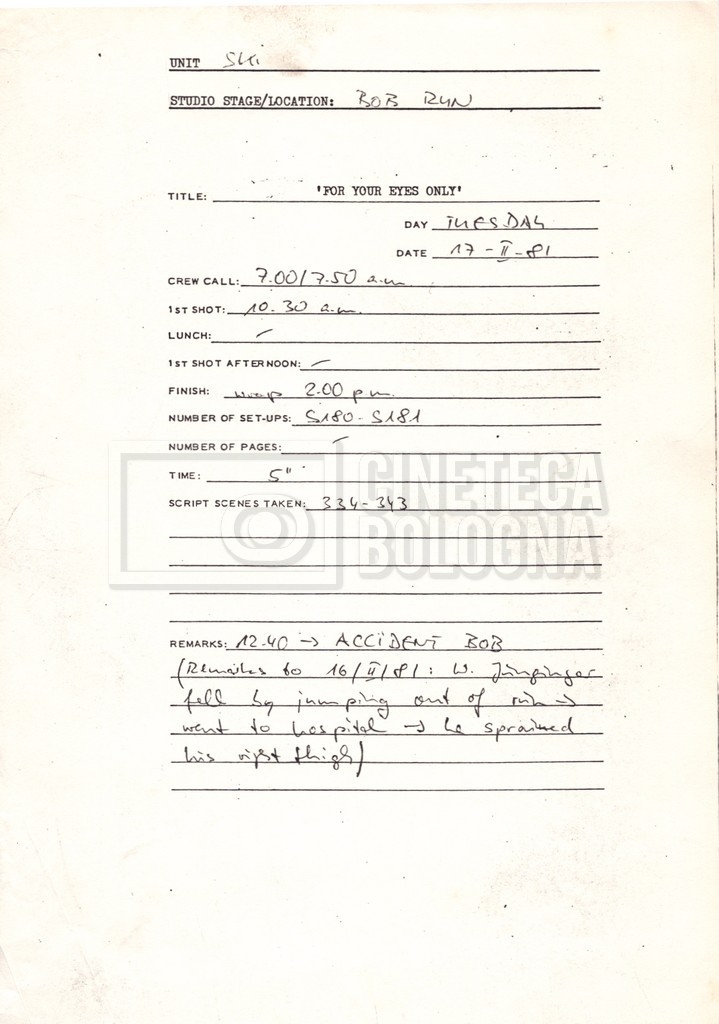 UNIT Ski
STUDIO STAGE/LOCATION: BOB RUN
TITLE: 'FOR YOUR EYES ONLY'
DAY TUESDAY
DATE 17-II-81
CREW CALL: 7.00/7.50 a.m.
1ST SHOT: 10.30 a.m.
LUNCH: —
1ST SHOT AFTERNOON: —
FINISH: wrap 2.00 p.m.
NUMBER OF SET-UPS: S180-S181
NUMBER OF PAGES: —
TIME: 5"
SCRIPT SCENES TAKEN: 334-343
CINETECA
BOLOGNA
REMARKS: 12.40 → ACCIDENT BOB
(Remarks to 16/II/81: W. Junginger
fell by jumping out of run →
went to hospital → he sprained
his right thigh)